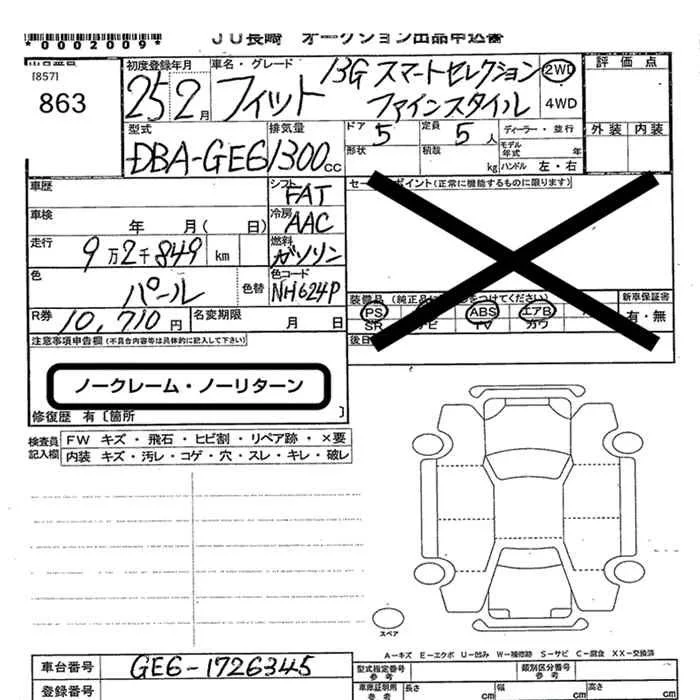 *0002009*
JU長崎 オークション出品申込書
出品番号
[857]
863
初度登録年月
25 2月
車名・グレード
フィット
13G スマートセレクション
ファインスタイル
2WD
4WD
評価点
外装 内装
型式
DBA-GE6
排気量
1300cc
ドア 5
形状
定員 5人
積載 kg
ディーラー・並行
モデル年式 年
ハンドル 左・右
車歴
シフト
FAT
車検 年 月( 日)
冷房
AAC
走行
9万2千849km
燃料
ガソリン
色
パール
色替
色コード
NH624P
R券
10,710円
名変期限 月 日
セールスポイント(正常に機能するものに限ります)
装備品
PS ABS エアB
SR TV カワ
新車保証書
有・無
後日
注意事項申告欄(不具合内容等は具体的に記入して下さい)
ノークレーム・ノーリターン
修復歴 有〔箇所 〕
検査員記入欄
FW キズ・飛石・ヒビ割・リペア跡・×要
内装 キズ・汚レ・コゲ・穴・スレ・キレ・破レ
スペア
A-キズ E-エクボ U-凹み W-補修跡 S-サビ C-腐食 XX-交換済
車台番号
GE6-1726345
登録番号
型式指定番号 参考
類別区分番号 参考
車庫証明用 参考
長さ cm
幅 cm
高さ cm